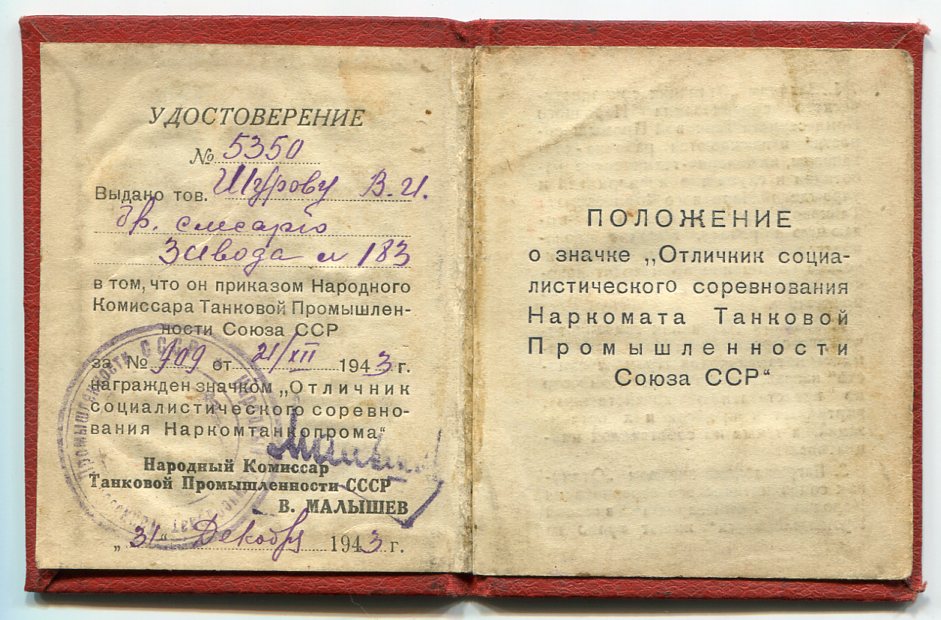 УДОСТОВЕРЕНИЕ
№ 5350
Выдано тов. Шурову В. И.
бр. слесарю
Завода № 183
в том, что он приказом Народного
Комиссара Танковой Промышлен-
ности Союза ССР
за № 909 от 21/XII 1943 г.
награжден значком „Отличник
социалистического соревно-
вания Наркомтанкопрома“
Народный Комиссар
Танковой Промышленности СССР
В. МАЛЫШЕВ
„31“ Декабря 1943 г.
ПОЛОЖЕНИЕ
о значке „Отличник социа-
листического соревнования
Наркомата Танковой
Промышленности
Союза ССР“